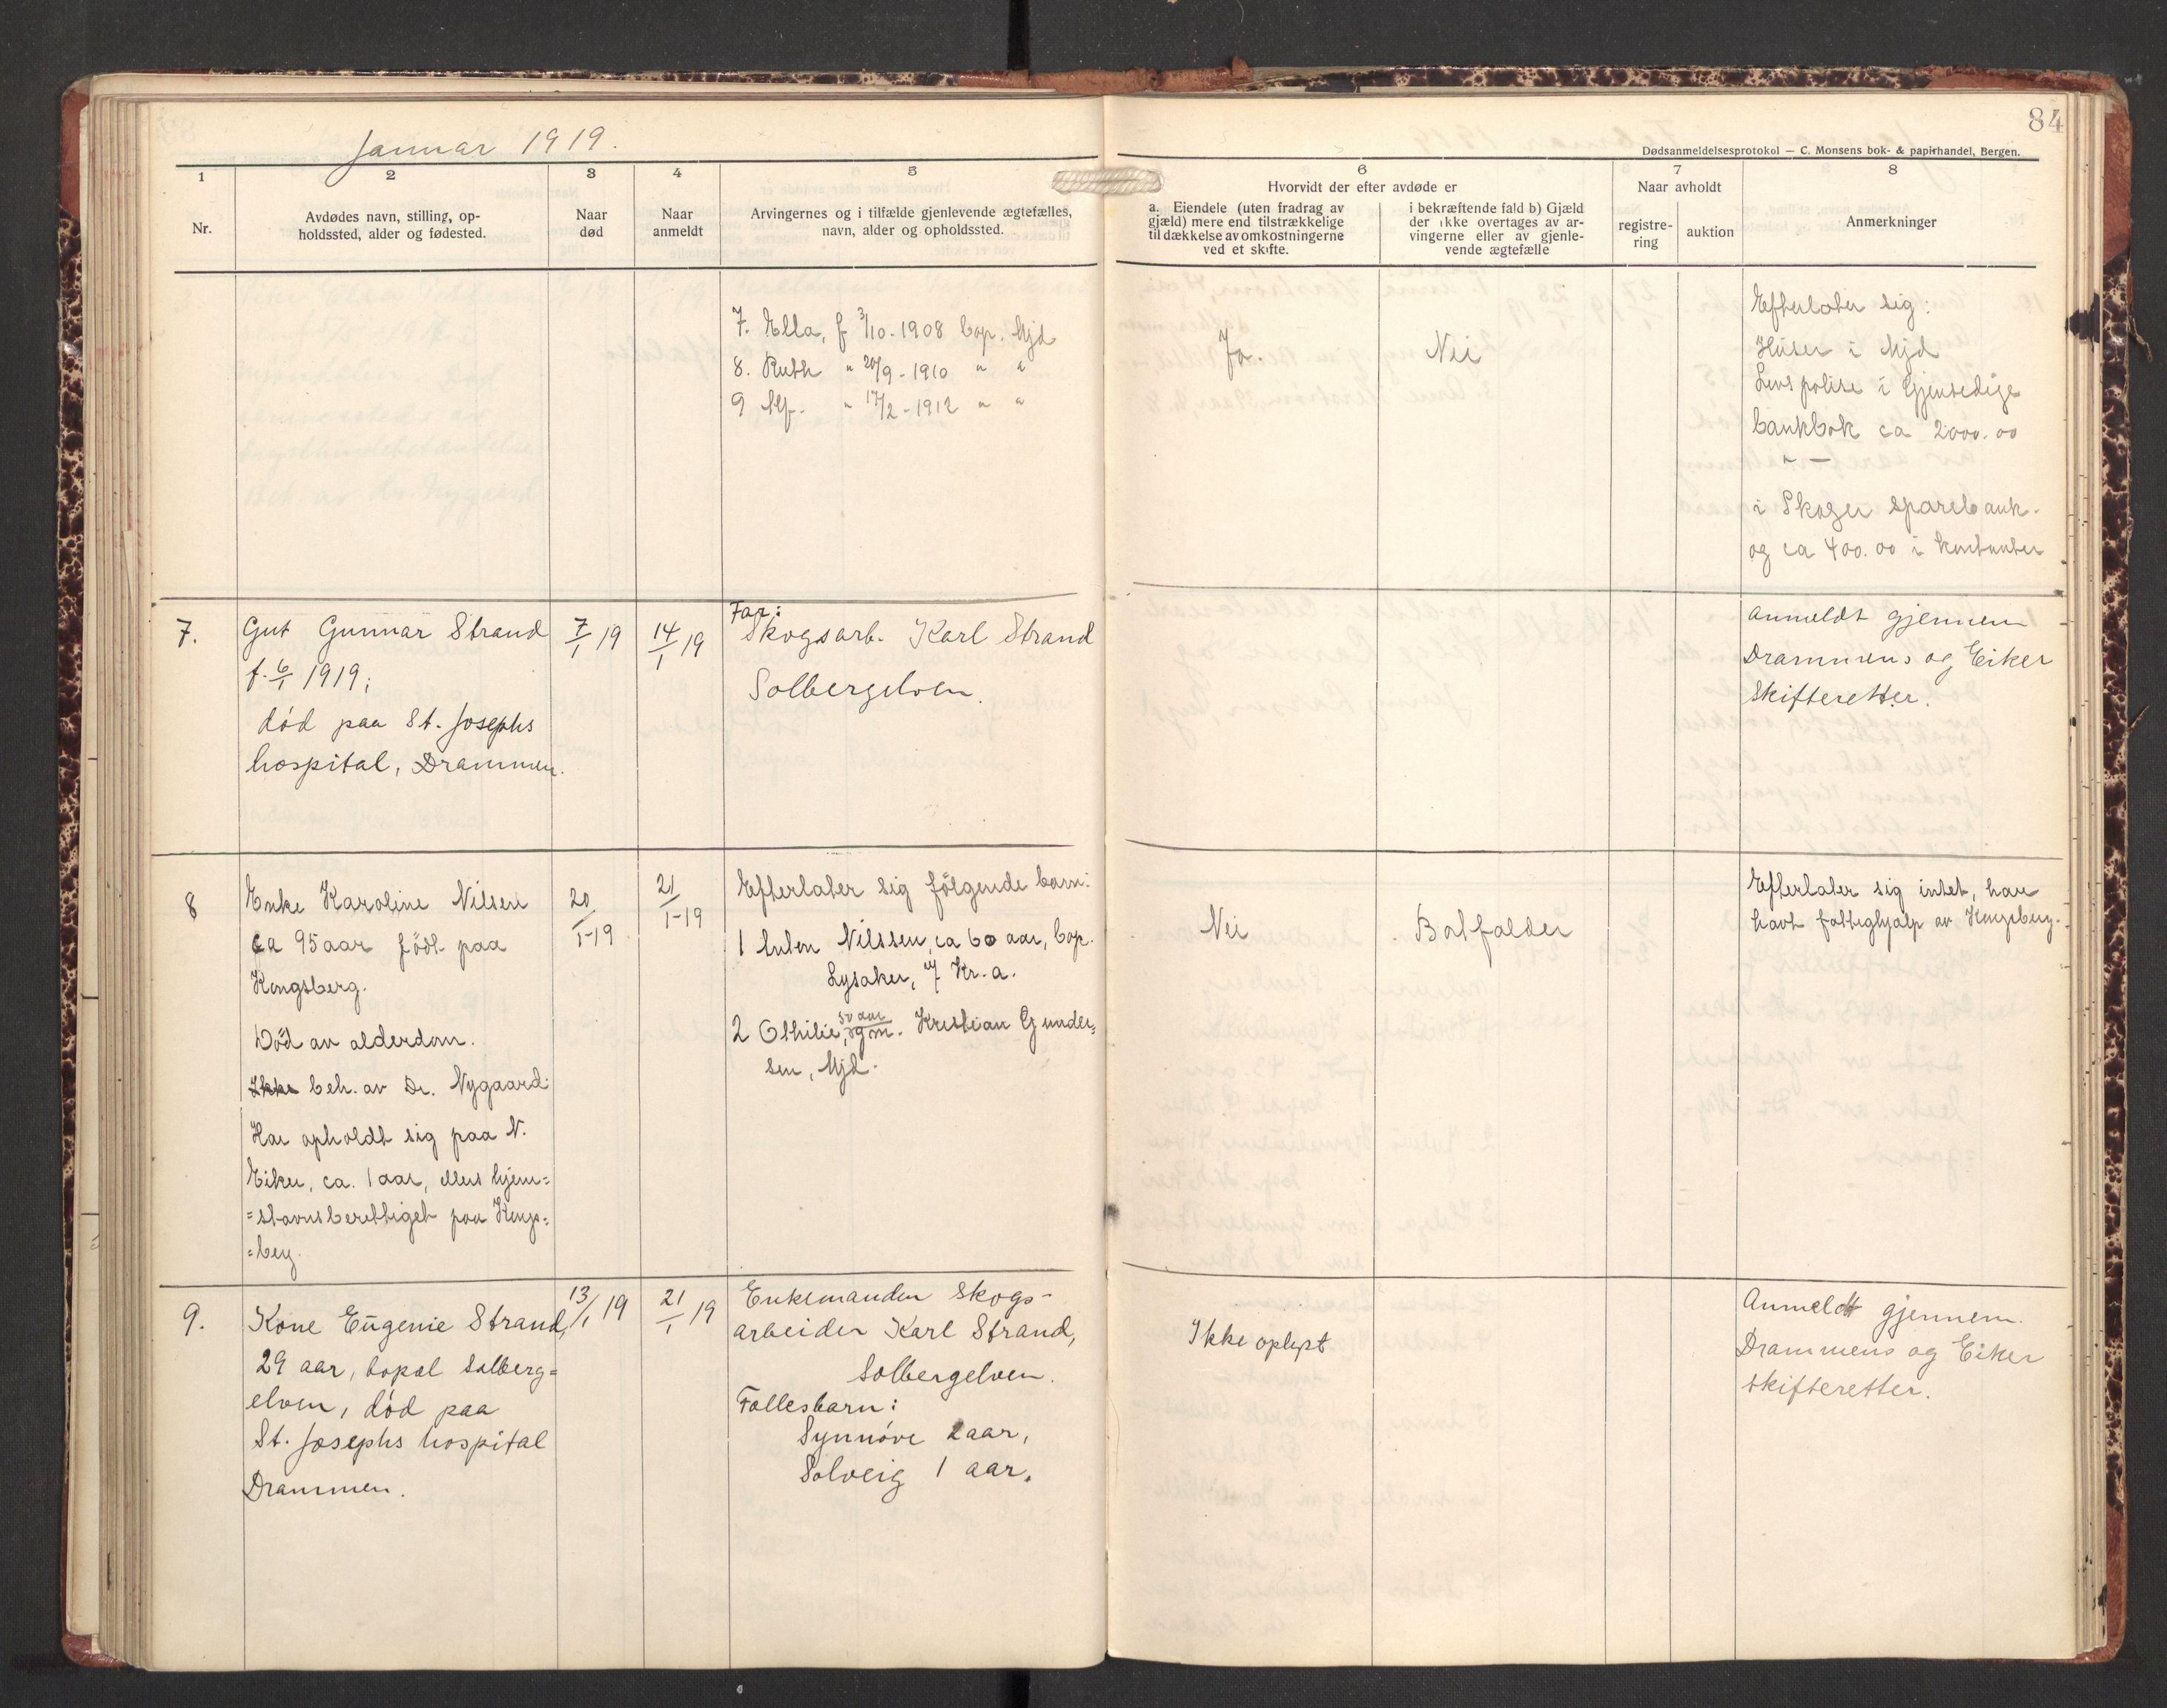 Januar 1919.
84
Dødsanmeldelsesprotokol — C. Monsens bok- & papirhandel, Bergen.
1
Nr.
2
Avdødes navn, stilling, op-
holdssted, alder og fødested.
3
Naar
død
4
Naar
anmeldt
5
Arvingernes og i tilfælde gjenlevende ægtefælles,
navn, alder og opholdssted.
6
Hvorvidt der efter avdøde er
a. Eiendele (uten fradrag av
gjæld) mere end tilstrækkelige
til dækkelse av omkostningerne
ved et skifte.
i bekræftende fald b) Gjæld
der ikke overtages av ar-
vingerne eller av gjenle-
vende ægtefælle
7
Naar avholdt
registre-
ring
auktion
8
Anmerkninger
7. Ella, f 3/10. 1908 bop. Mjd
8. Ruth " 20/9 - 1910 " "
9 Alf. " 17/2 - 1912 " "
Ja.
Nei
Efterlater sig:
Huser i Mjd
Livspolise i Gjensedige
bankbok ca 2000.00
" —
i Skoger sparebank.
og ca 400.00 i kontanter
7.
Gut Gunnar Strand
f. 6/1 1919;
död paa St. Josephs
hospital, Drammen.
7/1 19
14/1 19
Far:
Skogsarb. Karl Strand
Solbergelven.
Anmeldt gjennem
Drammens og Eiker
Skifteretter.
8
Enke Karoline Nilsen
ca 95 aar födt paa
Kongsberg.
Död av alderdom.
Ikke beh. av Dr. Nygaard.
Har opholdt sig paa N.
Eiker, ca. 1 aar, ellers hjem=
=stavnsberettiget paa Kongs=
=berg.
20/1-19
21/1-19
Efterlater sig fölgende barn:
1 Nilssen, ca 60 aar, bop.
Lysaker, Kr. a.
2 Othilie, 50 aar gm. Kristian Gunder=
sen, Mjd.
Nei
Bortfalder
Efterlater sig intet, har
havt fattighjælp av Kongsberg.
9.
Kone Eugenie Strand,
29 aar, bopæl Solberg=
elven, död paa
St. Josephs hospital
Drammen.
13/1 19
21/1 19
Enkemanden skogs-
arbeider Karl Strand,
Solbergelven.
Fællesbarn:
Synnöve 2 aar,
Solveig 1 aar.
Ikke oplyst
Anmeldt gjennem.
Drammens og Eiker
skifteretter.